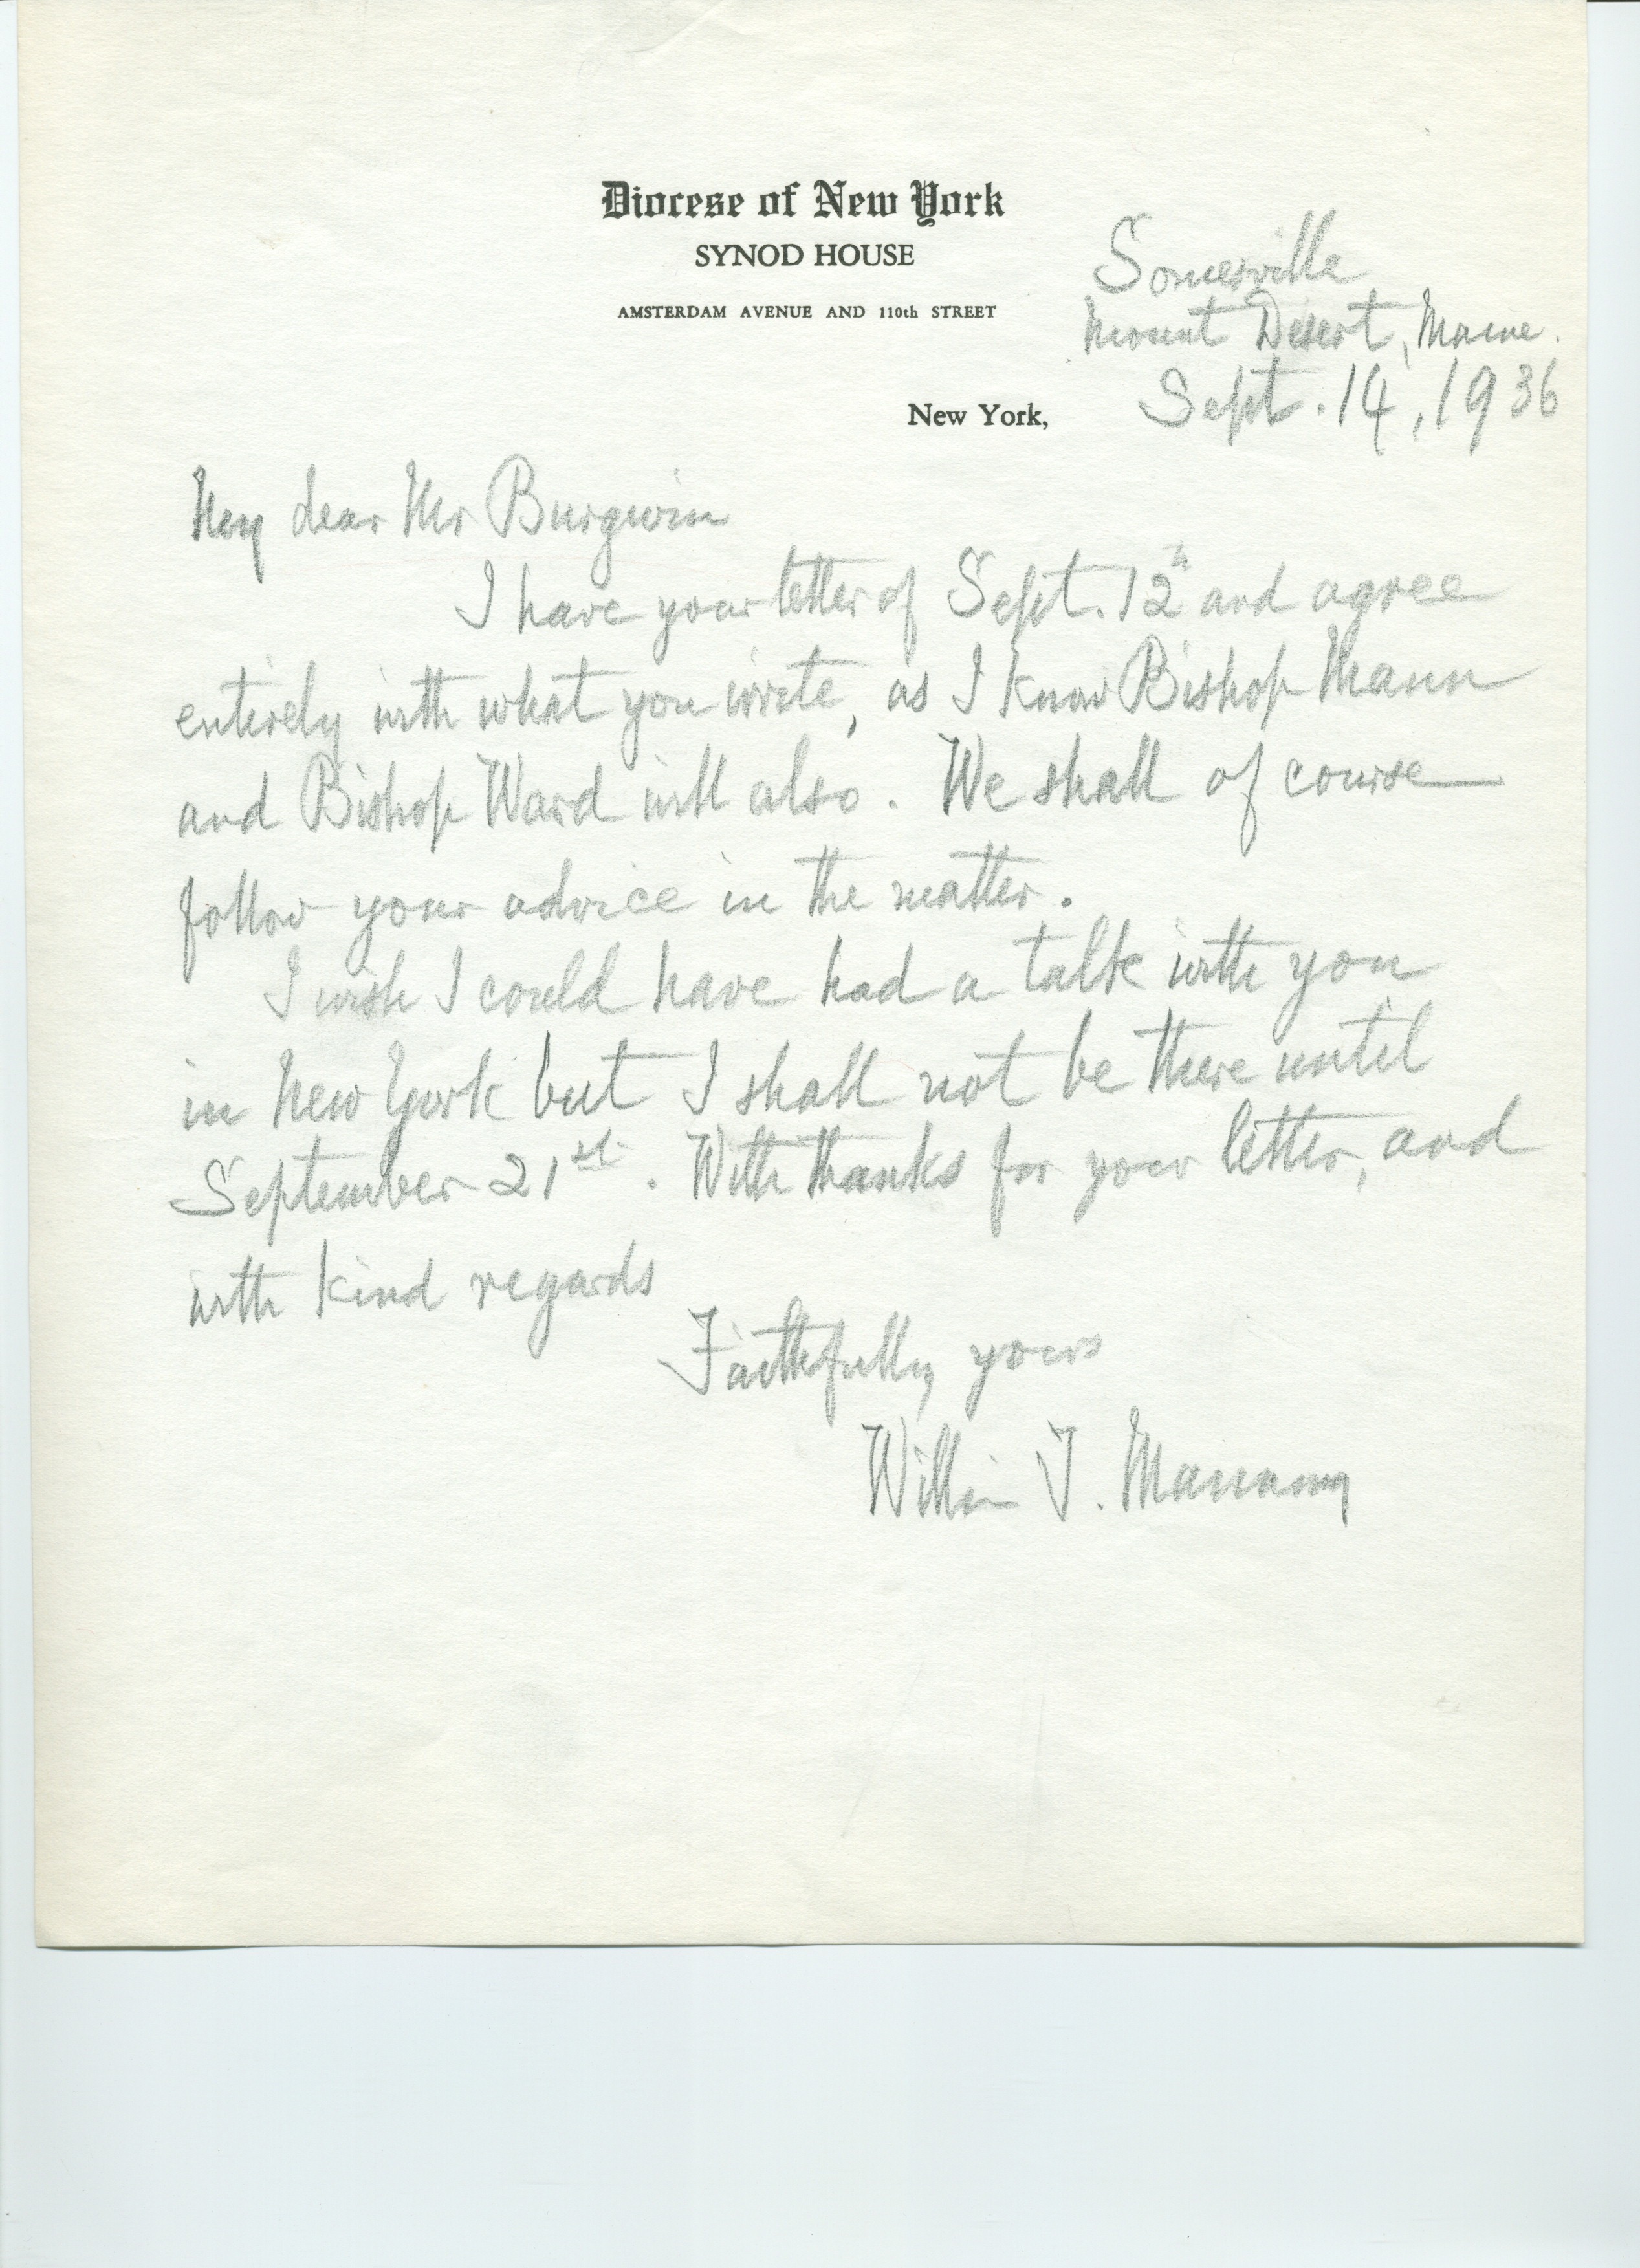 Diocese of New York
SYNOD HOUSE
AMSTERDAM AVENUE AND 110th STREET
Somesville
Mount Desert, Maine.
New York, Sept. 14, 1936
My dear Mr Burgwin
I have your letter of Sept. 12th and agree
entirely with what you write, as I know Bishop Mann
and Bishop Ward will also. We shall of course
follow your advice in the matter.
I wish I could have had a talk with you
in New York but I shall not be there until
September 21st. With thanks for your letter, and
with kind regards
Faithfully yours
William T. Manning